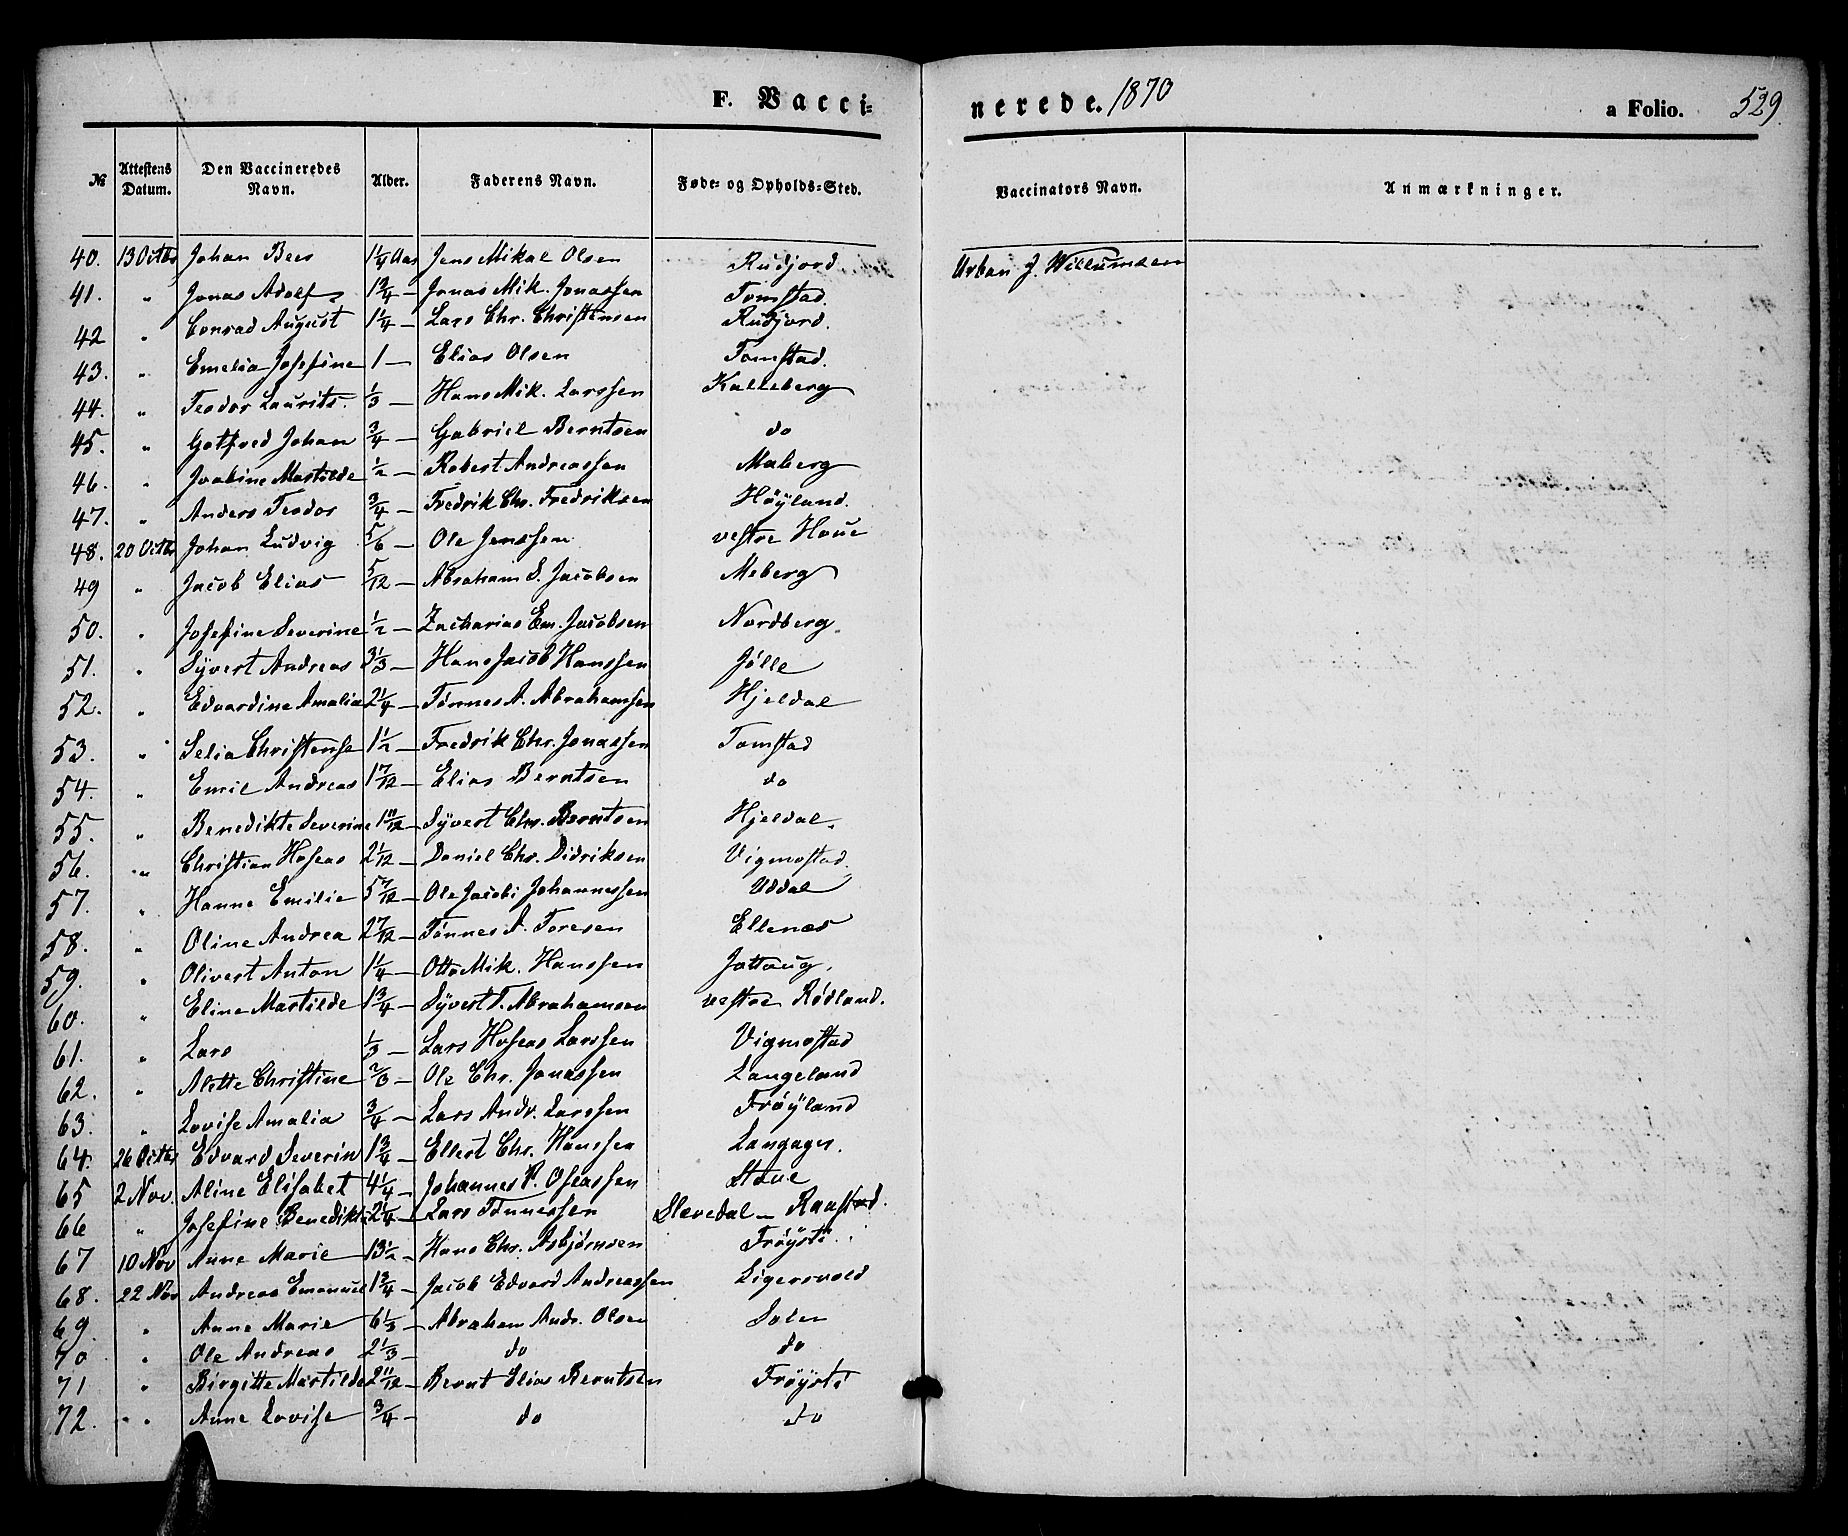 F. Vacci-
nerede. 1870
a Folio. 529.
No | Attestens Datum. | Den Vaccineredes Navn. | Alder. | Faderens Navn. | Føde- og Opholds-Sted. | Vaccinators Navn. | Anmærkninger.
40. 13 Octbr Johan Bers 1 1/4 Aar Jens Mikal Olsen Rudjord Urban J. Willumsen
41. " Jonas Adolf 1 3/4 — Jonas Mik. Jonassen Tomstad.
42 " Conrad August 1 1/4 — Lars Chr. Christensen Rudjord.
43. " Emelia Josefine 1 — Elias Olsen Tomstad.
44. " Teodor Laurits. 1/3 — Hans Mik. Larssen Kalleberg
45. " Gotfred Johan 3/4 — Gabriel Berntsen do
46. " Joabine Martilde 1/2 — Robert Andreassen Maberg
47. " Anders Teodor 3/4 — Fredrik Chr. Fredriksen Høyland.
48. 20 Octbr Johan Ludvig 5/6 — Ole Jenssen vestre Houe
49 " Jacob Elias 5/12 — Abraham S. Jacobsen Meberg
50. " Josefine Severine 1/2 — Zacharias Em. Jacobsen Nordberg.
51. " Syvert Andreas 3 1/3 — Hans Jacob Hanssen Jølle
52. " Edvardine Amalia 2 1/4 — Tønnes A. Abrahamsen Hjeldal
53. " Selia Christense 1 1/2 — Fredrik Chr. Jonassen Tomstad
54. " Emil Andreas 1 7/12 — Elias Berntsen do
55. " Benedikte Severine 1 11/12 — Syvert Chr. Berntsen Hjeldal.
56. " Christian Hoseas 2 1/12 — Daniel Chr. Didriksen Vigmostad.
57. " Hanne Emilie 5 7/12 — Ole Jacobi Johannessen Uddal
58. " Oline Andrea 2 7/12 — Tønnes A. Toresen Ellenæs
59. " Olivert Anton 1 1/4 — Otto Mik. Hanssen Jottoug.
60. " Eline Martilde 1 3/4 — Syvert T. Abrahamsen vestre Rødland.
61. " Lars 1/3 — Lars Hoseas Larssen Vigmostad
62. " Alette Christine 2/3 — Ole Chr. Jonassen Langeland
63. " Lovise Amalia 3/4 — Lars Andr. Larssen Frøyland
64. 26 Octbr Edvard Severin 1 3/4 — Ellert Chr. Hanssen Langager.
65 2 Nov. Aline Elisabet 4 1/4 — Johannes P. Oseassen Stoue
66 " Josefine Benedikte 2 1/4 — Lars Tønnessen Slævedal — Raastad.
67 10 Nov Anne Marie 13 1/2 — Hans Chr. Asbjørnsen Frøysti
68. 22 Nov Andreas Emanuel 1 3/4 — Jacob Edvard Andreassen Ligersvold
69. " Anne Marie 6 1/3 — Abraham Andr. Olsen Solen
70 " Ole Andreas 2 1/3 — do do
71 " Birgitte Martilde 2 11/12 — Bernt Elias Berntsen Frøysti
72. " Anne Lovise 3/4 — do do